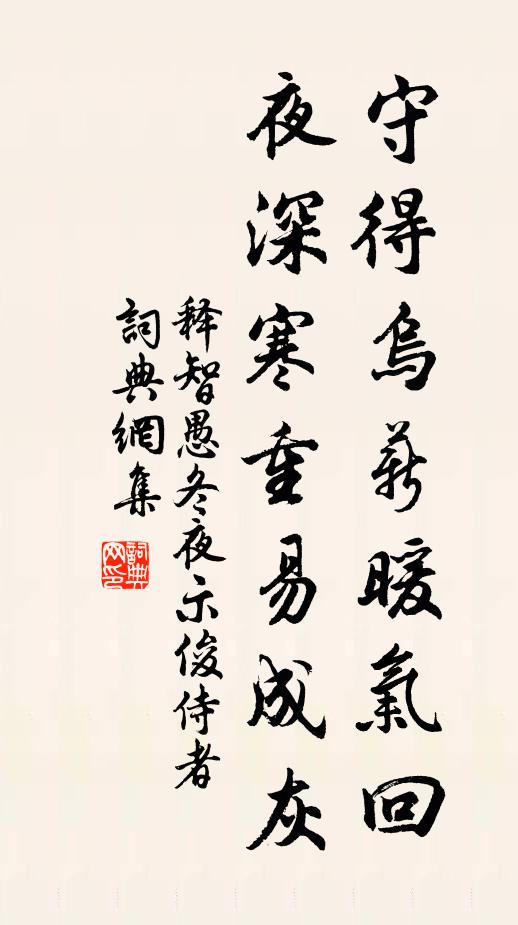 守得烏薪暖氣回
夜深寒重易成灰
释智愚冬夜示俊侍者
詞典網集
詞典網印